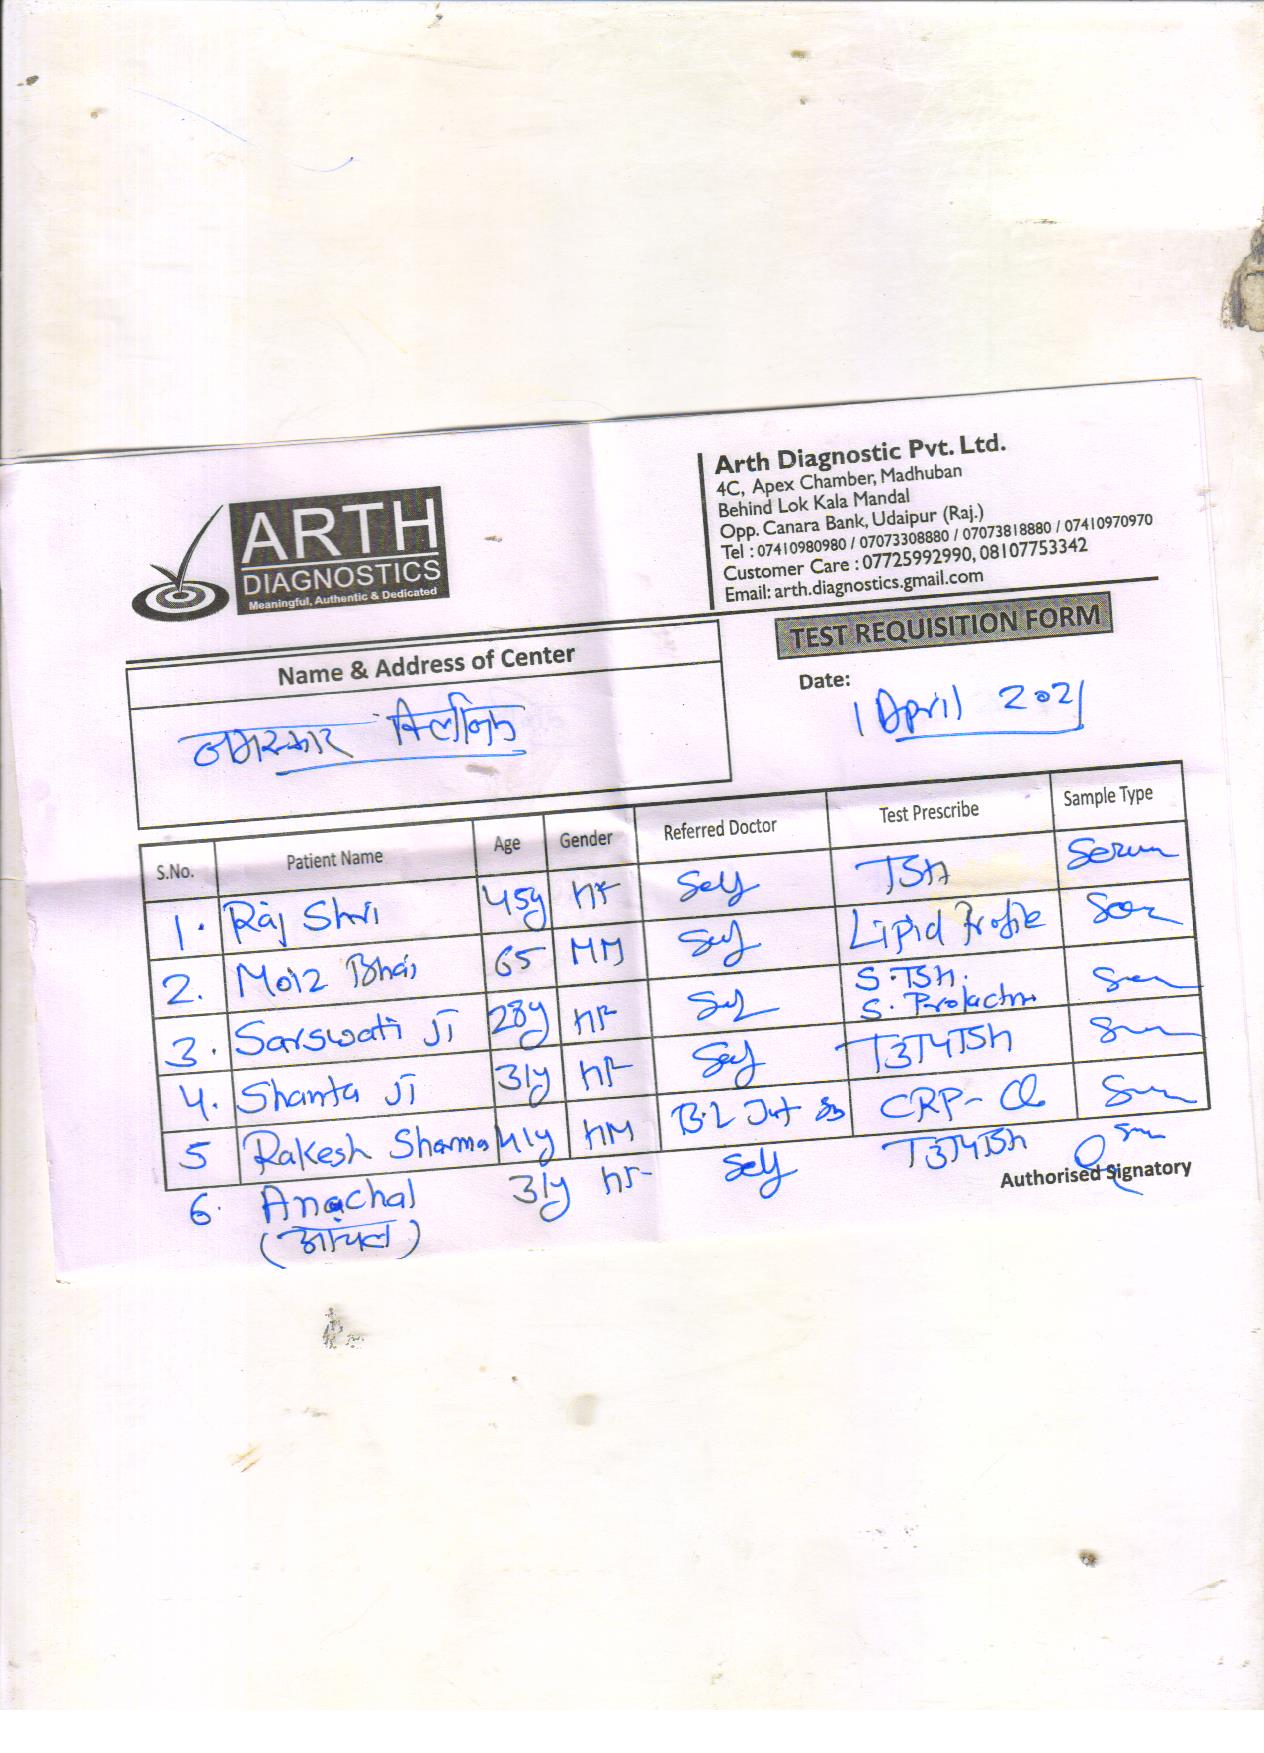 ARTH
DIAGNOSTICS
Meaningful, Authentic & Dedicated
Arth Diagnostic Pvt. Ltd.
4C, Apex Chamber, Madhuban
Behind Lok Kala Mandal
Opp. Canara Bank, Udaipur (Raj.)
Tel : 07410980980 / 07073308880 / 07073818880 / 07410970970
Customer Care : 07725992990, 08107753342
Email: arth.diagnostics.gmail.com
TEST REQUISITION FORM
Name & Address of Center
नमस्कार क्लिनिक
Date:
1 April 2021
S.No. Patient Name Age Gender Referred Doctor Test Prescribe Sample Type
1. Raj Shri 45y Self TSH Serum
2. Moiz Bhai 65 Self Lipid Profile
3. Sarswati JI 28y Self S.TSH. S. Prolactin
4. Shanta JI 31y Self T3T4TSH
5 Rakesh Sharma 41y CRP-
6. Anachal 31y Self T3T4TSH
(आंचल)
Authorised Signatory